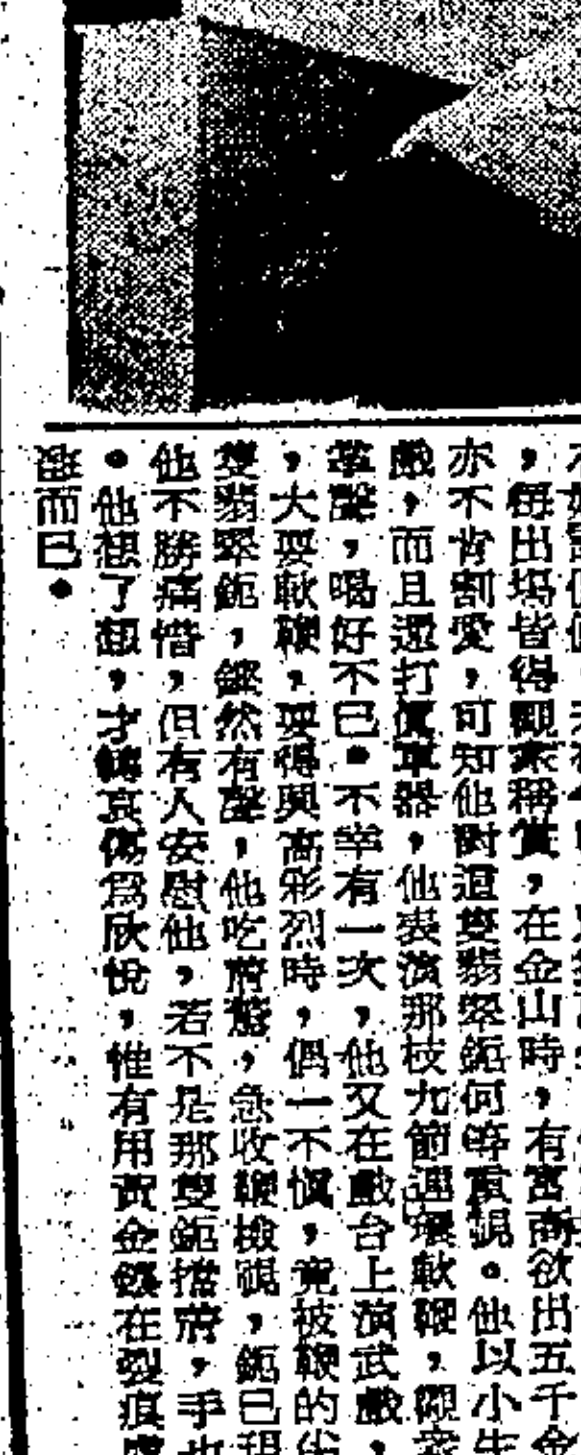 ，每出場皆得觀眾稱賞，在金山時，有富商欲出五千金
亦不肯割愛，可知他對這隻翡翠鈪何等重視。他以小生
戲，而且還打真軍器，他表演那枝九節連環軟鞭，觀眾
掌聲，喝好不已。不幸有一次，他又在戲台上演武戲，
，大耍軟鞭，耍得興高彩烈時，偶一不慎，竟被鞭的尖
隻翡翠鈪，鏗然有聲，他吃了驚，急收鞭檢視，鈪已現
他不勝痛惜，但有人安慰他，若不是那隻鈪擋着，手也
。他想了想，才轉哀傷為欣悅，惟有用黃金鑲在裂痕處
而已。